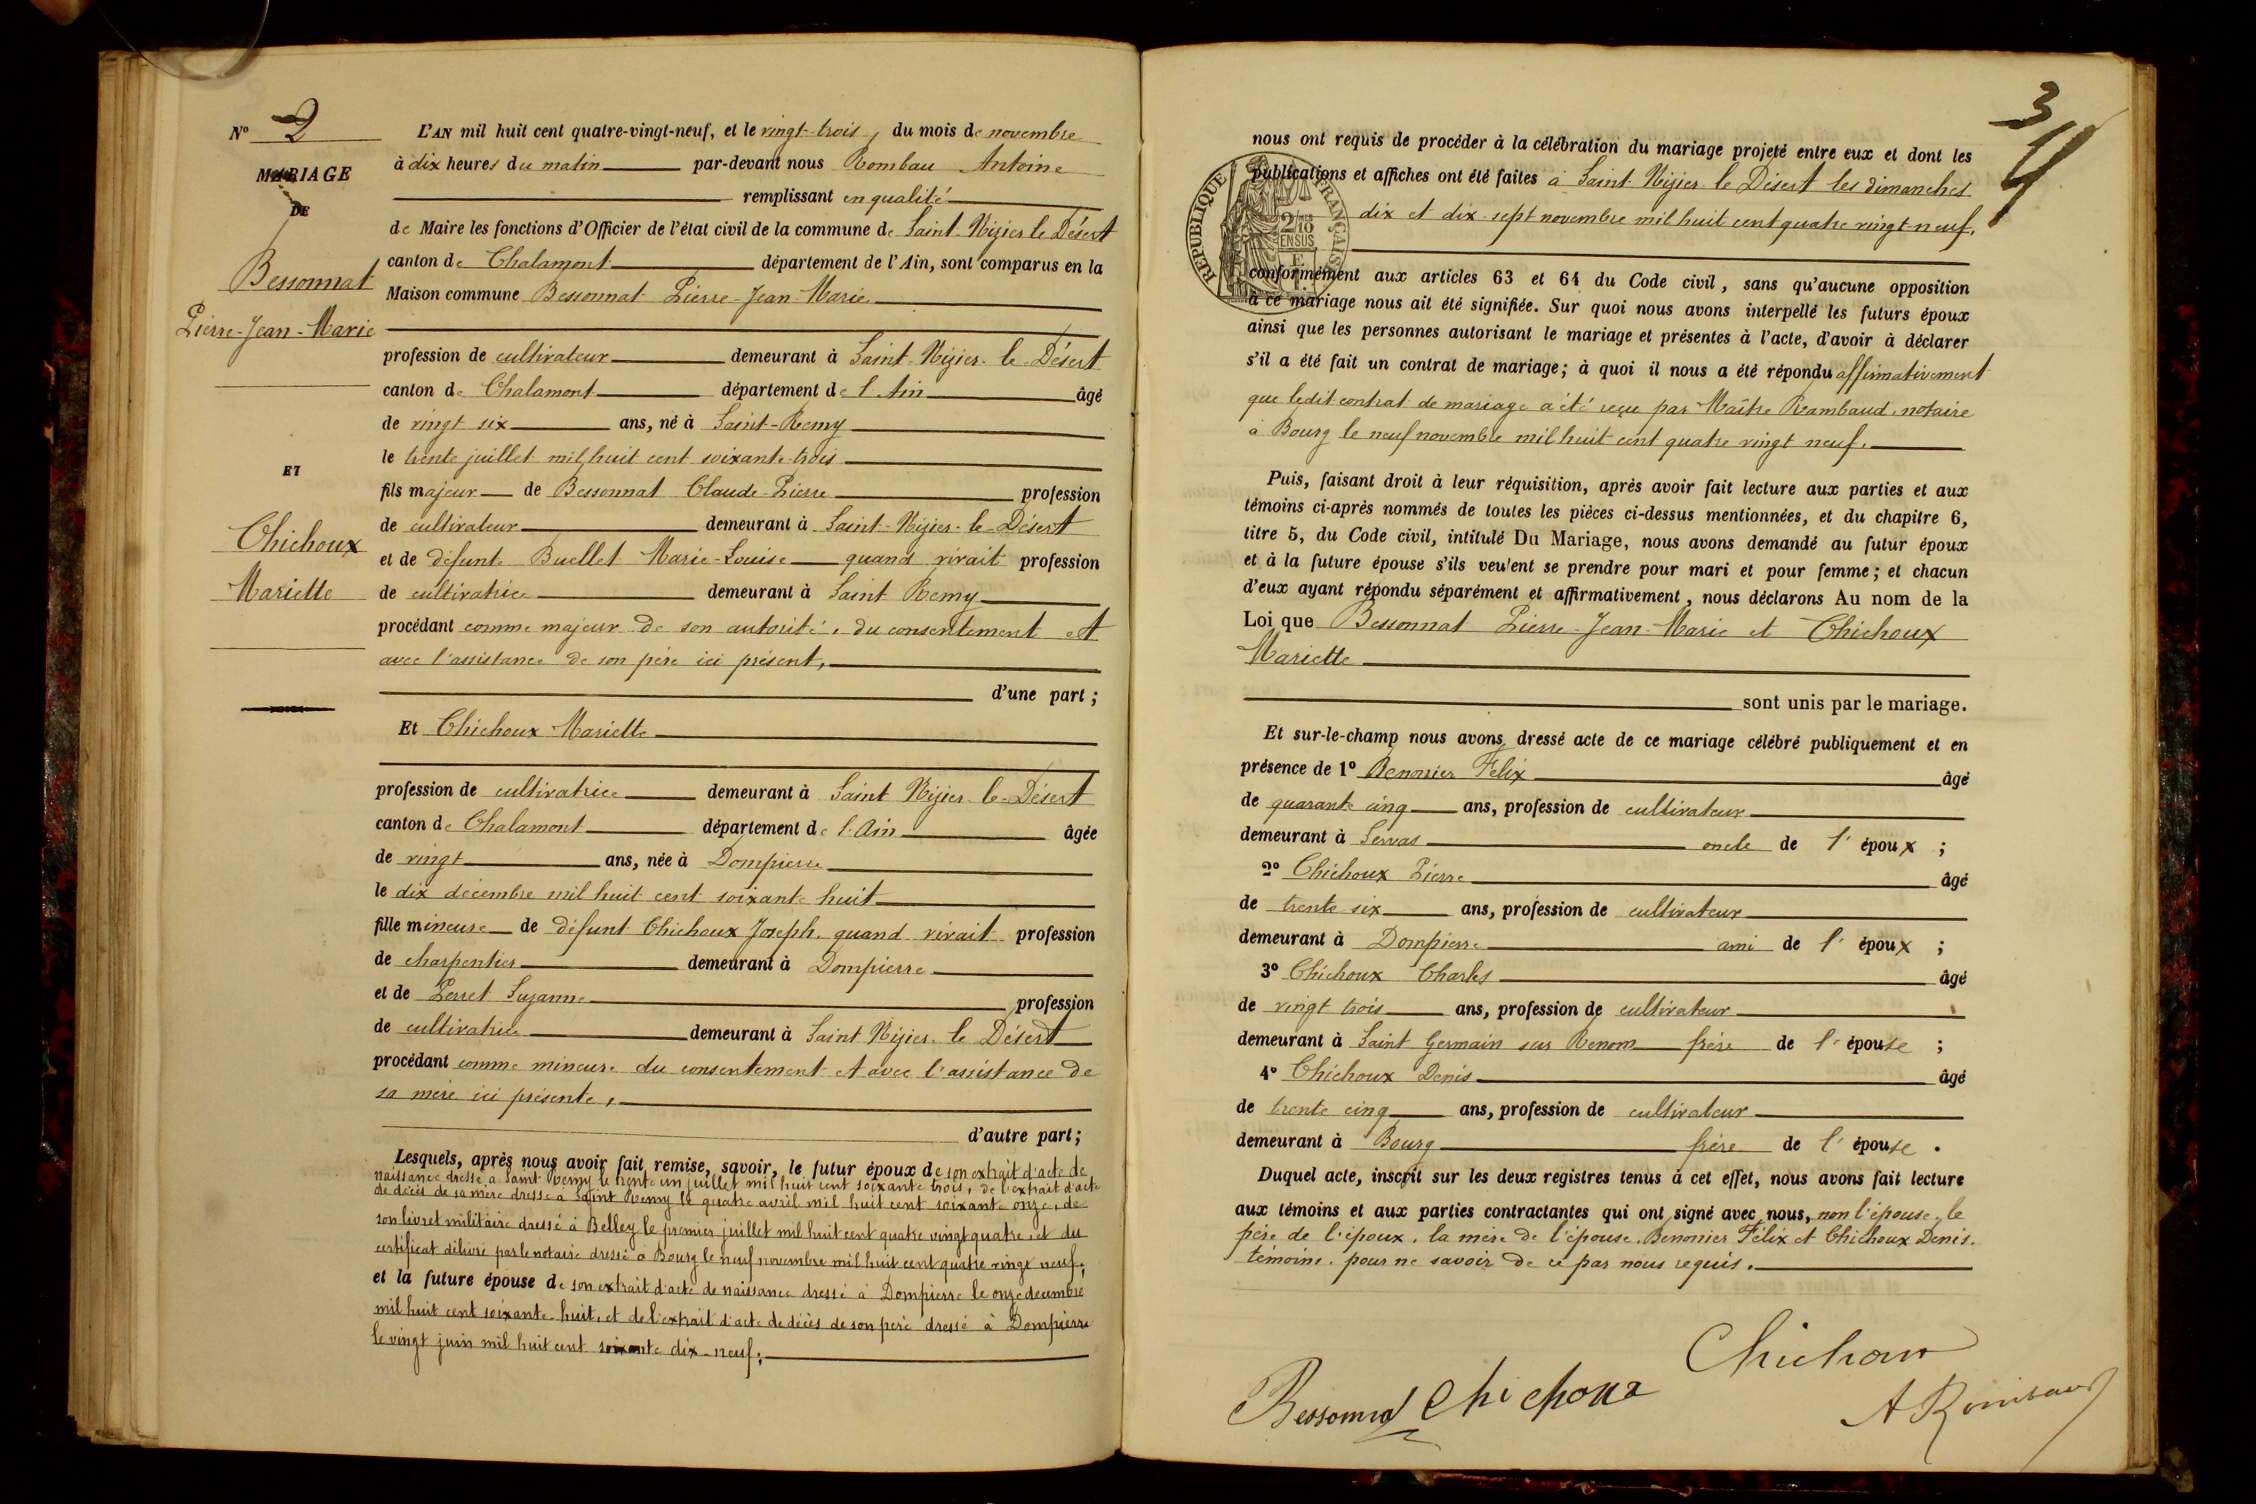 Nº 2
MARIAGE
DE
Bessonnat
Pierre-Jean-Marie
ET
Chichoux
Mariette
L'AN mil huit cent quatre-vingt-neuf, et le vingt-trois, du mois de novembre
à dix heures du matin par-devant nous Rombau Antoine
remplissant en qualité
de Maire les fonctions d'Officier de l'état civil de la commune de Saint-Nizier le Désert
canton de Chalamont département de l'Ain, sont comparus en la
Maison commune Bessonnat Pierre-Jean-Marie
profession de cultivateur demeurant à Saint-Nizier-le-Désert
canton de Chalamont département de l'Ain âgé
de vingt six ans, né à Saint-Remy
le trente juillet mil huit cent soixante-trois
fils majeur de Bessonnat Claude-Pierre profession
de cultivateur demeurant à Saint-Nizier-le-Désert
et de défunte Buellet Marie-Louise quand vivait profession
de cultivatrice demeurant à Saint Remy
procédant comme majeur de son autorité, du consentement et
avec l'assistance de son père ici présent,
d'une part ;
Et Chichoux Mariette
profession de cultivatrice demeurant à Saint Nizier-le-Désert
canton de Chalamont département de l'Ain âgée
de vingt ans, née à Dompierre
le dix décembre mil huit cent soixante huit
fille mineure de défunt Chichoux Joseph, quand vivait profession
de charpentier demeurant à Dompierre
et de Perret Suzanne profession
de cultivatrice demeurant à Saint Nizier-le Désert
procédant comme mineure du consentement et avec l'assistance de
sa mère ici présente,
d'autre part ;
Lesquels, après nous avoir fait remise, savoir, le futur époux de son extrait d'acte de
naissance dressé à Saint Remy le trente un juillet mil huit cent soixante trois, de l'extrait d'acte
de décès de sa mère dressé à Saint Remy le quatre avril mil huit cent soixante onze, de
son livret militaire dressé à Belley le premier juillet mil huit cent quatre vingt quatre, et du
certificat délivré par le notaire dressé à Bourg le neuf novembre mil huit cent quatre vingt neuf,
et la future épouse de son extrait d'acte de naissance dressé à Dompierre le onze décembre
mil huit cent soixante-huit, et de l'extrait d'acte de décès de son père dressé à Dompierre
le vingt juin mil huit cent soixante dix-neuf;
3
4
nous ont requis de procéder à la célébration du mariage projeté entre eux et dont les
publications et affiches ont été faites à Saint-Nizier le Désert les dimanches
dix et dix-sept novembre mil huit cent quatre vingt-neuf,
REPUBLIQUE FRANÇAISE
2/10
EN SUS
conformément aux articles 63 et 64 du Code civil, sans qu'aucune opposition
à ce mariage nous ait été signifiée. Sur quoi nous avons interpellé les futurs époux
ainsi que les personnes autorisant le mariage et présentes à l'acte, d'avoir à déclarer
s'il a été fait un contrat de mariage; à quoi il nous a été répondu affirmativement
que ledit contrat de mariage a été reçu par Maître Rambaud, notaire
à Bourg le neuf novembre mil huit cent quatre vingt neuf.
Puis, faisant droit à leur réquisition, après avoir fait lecture aux parties et aux
témoins ci-après nommés de toutes les pièces ci-dessus mentionnées, et du chapitre 6,
titre 5, du Code civil, intitulé Du Mariage, nous avons demandé au futur époux
et à la future épouse s'ils veulent se prendre pour mari et pour femme; et chacun
d'eux ayant répondu séparément et affirmativement, nous déclarons Au nom de la
Loi que Bessonnat Pierre-Jean-Marie et Chichoux
Mariette
sont unis par le mariage.
Et sur-le-champ nous avons dressé acte de ce mariage célébré publiquement et en
présence de 1º Benonier Félix âgé
de quarante cinq ans, profession de cultivateur
demeurant à Servas oncle de l'époux ;
2º Chichoux Pierre âgé
de trente six ans, profession de cultivateur
demeurant à Dompierre ami de l'époux ;
3º Chichoux Charles âgé
de vingt trois ans, profession de cultivateur
demeurant à Saint Germain sur Renom frère de l'épouse ;
4º Chichoux Denis âgé
de trente cinq ans, profession de cultivateur
demeurant à Bourg frère de l'épouse .
Duquel acte, inscrit sur les deux registres tenus à cet effet, nous avons fait lecture
aux témoins et aux parties contractantes qui ont signé avec nous, non l'épouse, le
père de l'époux, la mère de l'épouse, Benonier Félix et Chichoux Denis,
témoins, pour ne savoir de ce par nous requis.
Chichoux
Bessonnat Chichoux
A Rombau